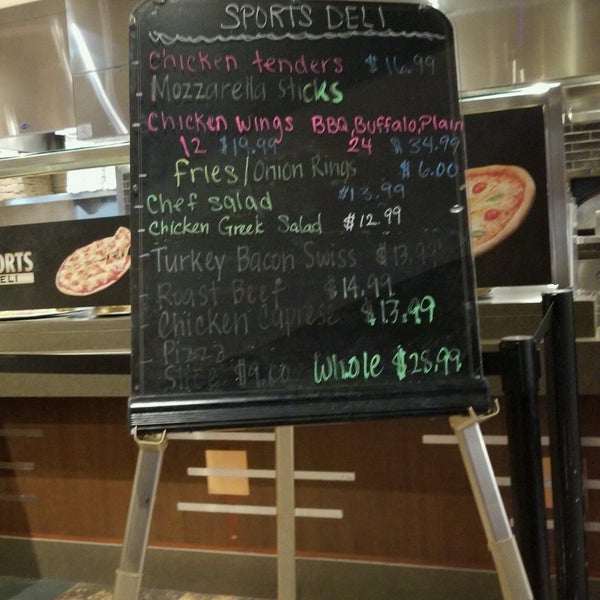 SPORTS DELI
Chicken tenders $16.99
Mozzarella sticks
Chicken Wings BBQ, Buffalo, Plain
12 $19.99 24 $34.99
fries/Onion Rings $6.00
Chef salad $13.99
Chicken Greek Salad $12.99
- Turkey Bacon Swiss $13.99
- Roast Beef $14.99
- Chicken Caprese $13.99
- Pizza
Slice $9.00 Whole $28.99
ORTS
ELI